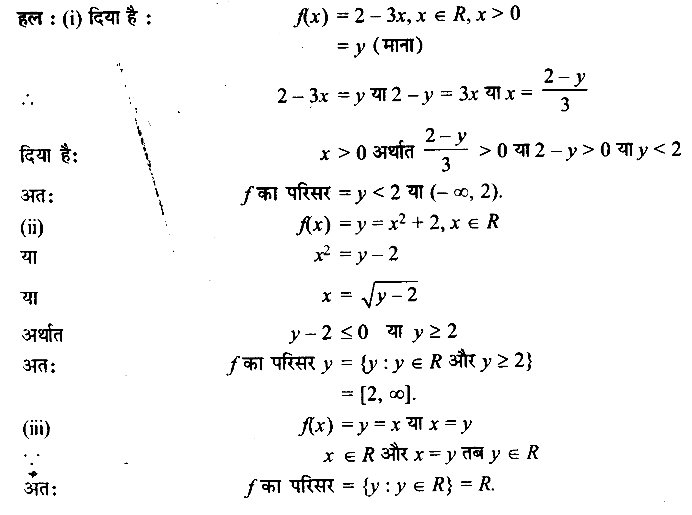 हल : (i) दिया है : f(x) = 2 – 3x, x ∈ R, x > 0
= y (माना)
∴ 2 – 3x = y या 2 – y = 3x या x = (2 – y)/3
दिया है: x > 0 अर्थात (2 – y)/3 > 0 या 2 – y > 0 या y < 2
अत: f का परिसर = y < 2 या (– ∞, 2).
(ii) f(x) = y = x² + 2, x ∈ R
या x² = y – 2
या x = √(y – 2)
अर्थात y – 2 ≤ 0 या y ≥ 2
अत: f का परिसर y = {y : y ∈ R और y ≥ 2}
= [2, ∞].
(iii) f(x) = y = x या x = y
∵ x ∈ R और x = y तब y ∈ R
अत: f का परिसर = {y : y ∈ R} = R.